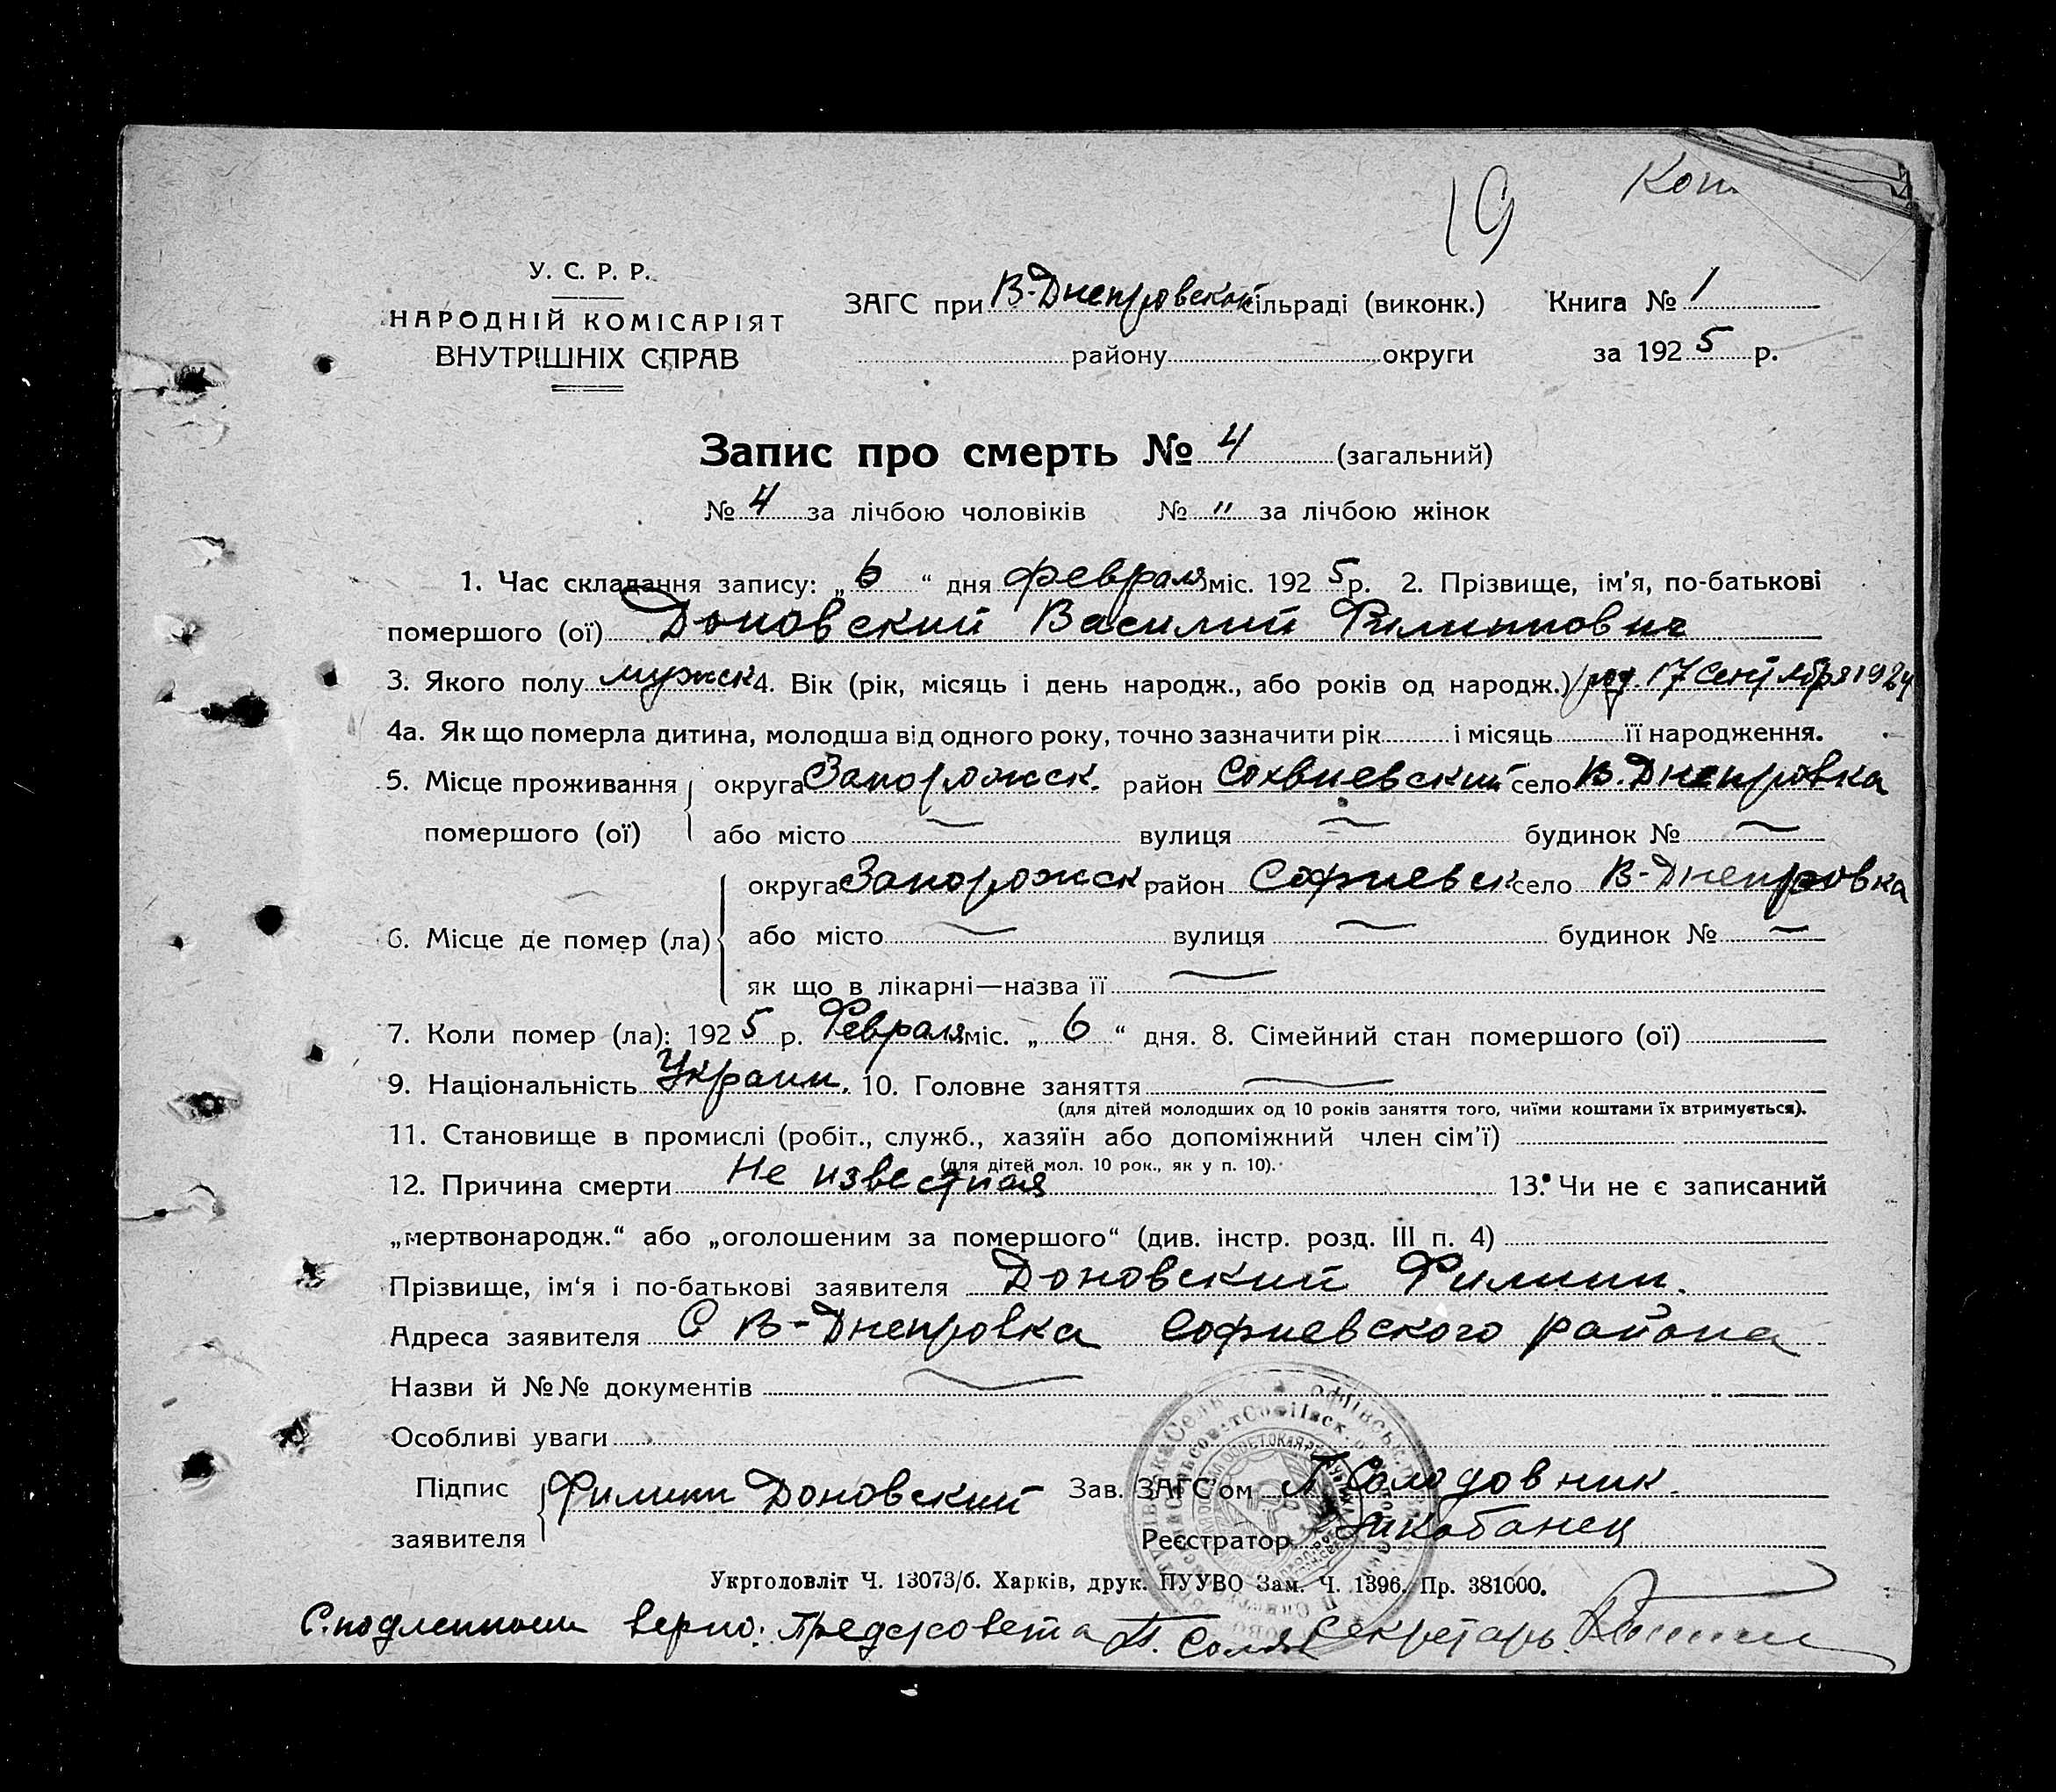 19 Коп
У. С. Р. Р.
НАРОДНІЙ КОМІСАРІЯТ
ВНУТРІШНІХ СПРАВ
ЗАГС при В-Днепровской сільраді (виконк.) Книга № 1
району округи за 1925 р.
Запис про смерть № 4 (загальний)
№ 4 за лічбою чоловіків № " за лічбою жінок
1. Час складання запису: „6" дня февраля міс. 1925 р. 2. Прізвище, ім'я, по-батькові
помершого (ої) Доновский Василий Филиппович
3. Якого полу мужск 4. Вік (рік, місяць і день народж., або років од народж.) род. 17 Сентября 1924
4а. Як що померла дитина, молодша від одного року, точно зазначити рік і місяць її народження.
5. Місце проживання округа Запорожск. район Сохвиевский село В. Днепровка
помершого (ої) або місто — вулиця — будинок № —
округа Запорожск район Софиевск село В-Днепровка
6. Місце де помер (ла) або місто — вулиця — будинок № —
як що в лікарні—назва її —
7. Коли помер (ла): 1925 р. Февраля міс. „6" дня. 8. Сімейний стан помершого (ої)
9. Національність Украин. 10. Головне заняття —
(для дітей молодших од 10 років заняття того, чиїми коштами їх втримується).
11. Становище в промислі (робіт., служб., хазяїн або допоміжний член сім'ї)
(для дітей мол. 10 рок., як у п. 10).
12. Причина смерти Не известная 13. Чи не є записаний
„мертвонародж." або „оголошеним за помершого" (див. інстр. розд. III п. 4)
Прізвище, ім'я і по-батькові заявителя Доновский Филипп.
Адреса заявителя С В-Днепровка Софиевского района
Назви й №№ документів —
Особливі уваги
Підпис Филипп Доновский Зав. ЗАГС'ом П. Солодовник
заявителя Реєстратор
Укрголовліт Ч. 13073/б. Харків, друк. ПУУВО Зам. Ч. 1396. Пр. 381000.
С подленным верно: Предсовета П. Солод Секретарь